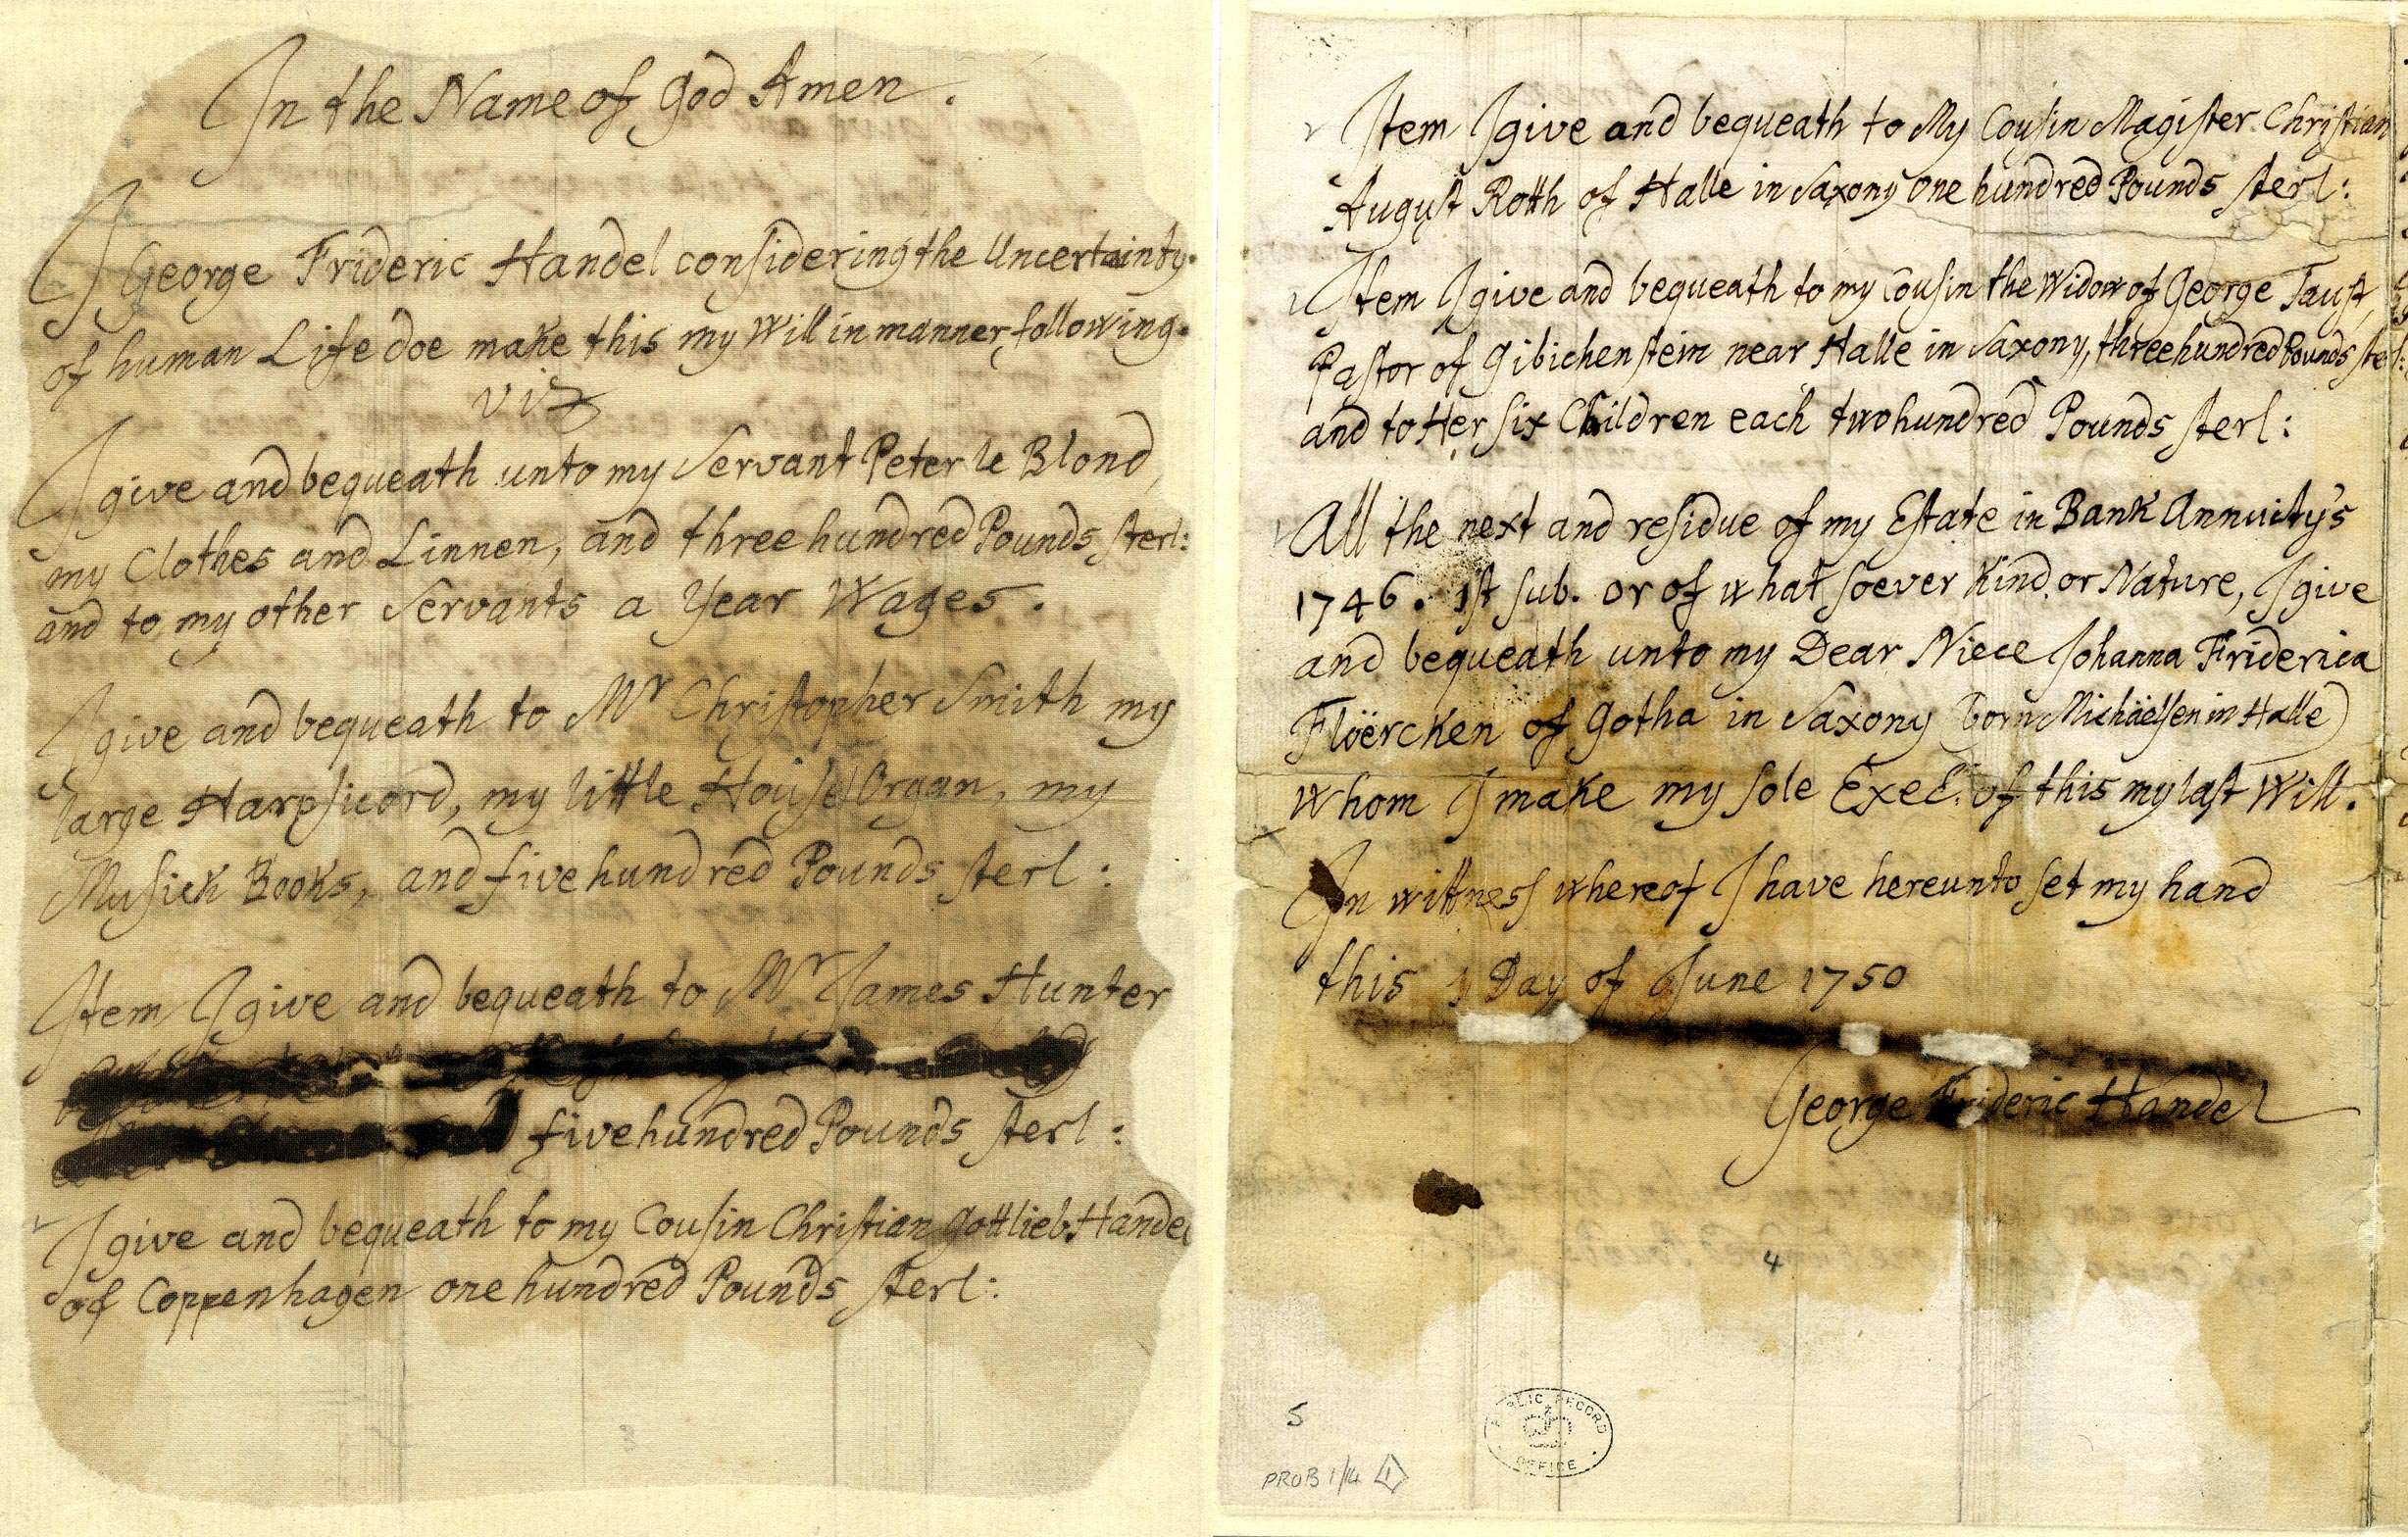 In the Name of God Amen.
I George Frideric Handel considering the Uncertainty
of human Life doe make this my Will in manner following
viz
I give and bequeath unto my Servant Peter le Blond,
my Clothes and Linnen, and three hundred Pounds sterl:
and to my other Servants a year Wages.
I give and bequeath to Mr Christopher Smith my
large Harpsicord, my little House Organ, my
Musick Books, and five hundred Pounds sterl:
Item I give and bequeath to Mr James Hunter
five hundred Pounds sterl:
I give and bequeath to my Cousin Christian Gottlieb Handel
of Coppenhagen one hundred Pounds sterl:
3
Item I give and bequeath to My Cousin Magister Christian
August Rotth of Halle in Saxony one hundred Pounds sterl:
Item I give and bequeath to my Cousin the Widow of George Taust,
Pastor of Gibichenstein near Halle in Saxony, three hundred Pounds sterl:
and to Her six Children each two hundred Pounds sterl:
All the next and residue of my Estate in Bank Annuity's
1746. 1st sub. or of what soever Kind or Nature, I give
and bequeath unto my Dear Niece Johanna Friderica
Flöercken of Gotha in Saxony (born Michäelsen in Halle)
whom I make my sole Exec: of this my last Will.
In wittness whereof I have hereunto set my hand
this 1 Day of June 1750
George Frideric Handel
4
5
PUBLIC RECORD OFFICE
PROB 1/14 1